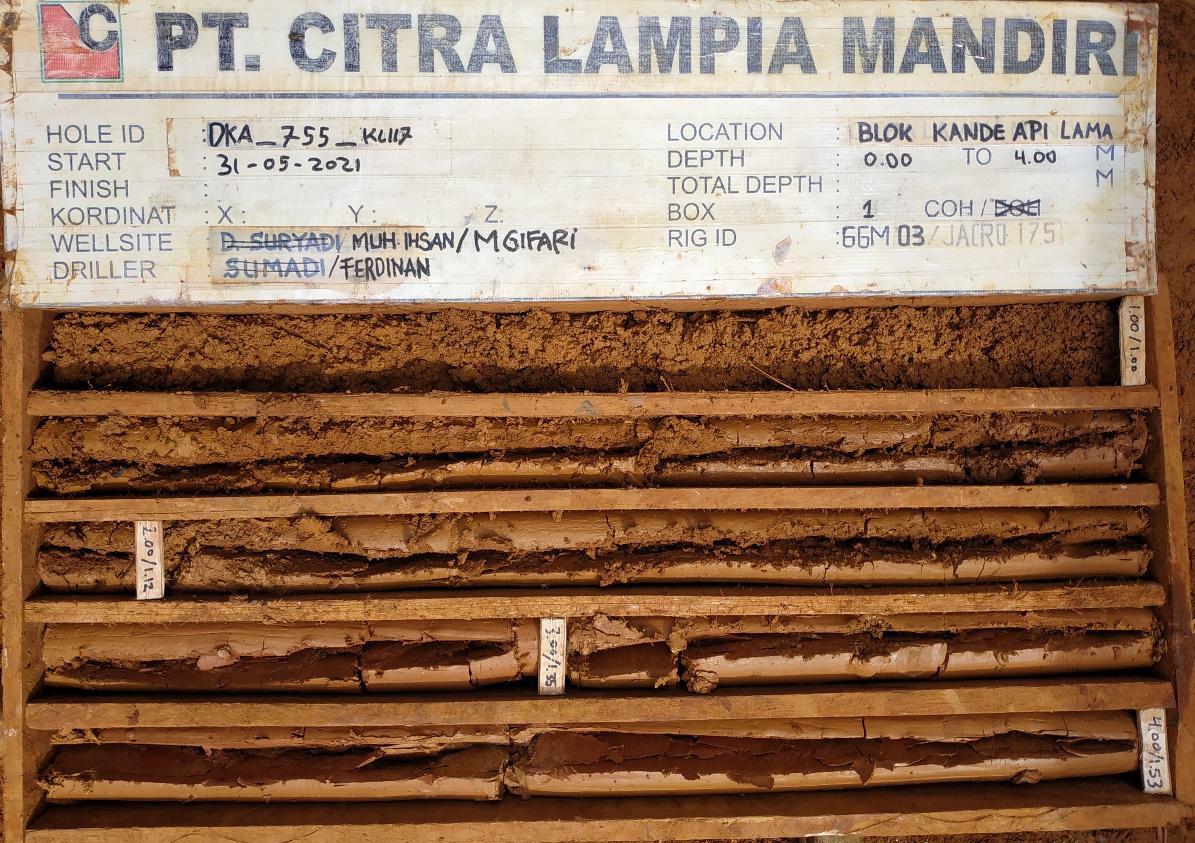 C PT. CITRA LAMPIA MANDIRI
HOLE ID : DKA_755_KL117
START : 31-05-2021
FINISH :
KORDINAT : X : Y : Z:
WELLSITE : D. SURYADI MUH IHSAN/MGIFARI
DRILLER SUMADI/FERDINAN
LOCATION : BLOK KANDE API LAMA
DEPTH : 0.00 TO 4.00 M
TOTAL DEPTH : M
BOX : 1 COH/EOH
RIG ID : GGM 03/JACRO 175
1.00/1.00
2.00/1.12
3.00/1.35
4.00/1.53